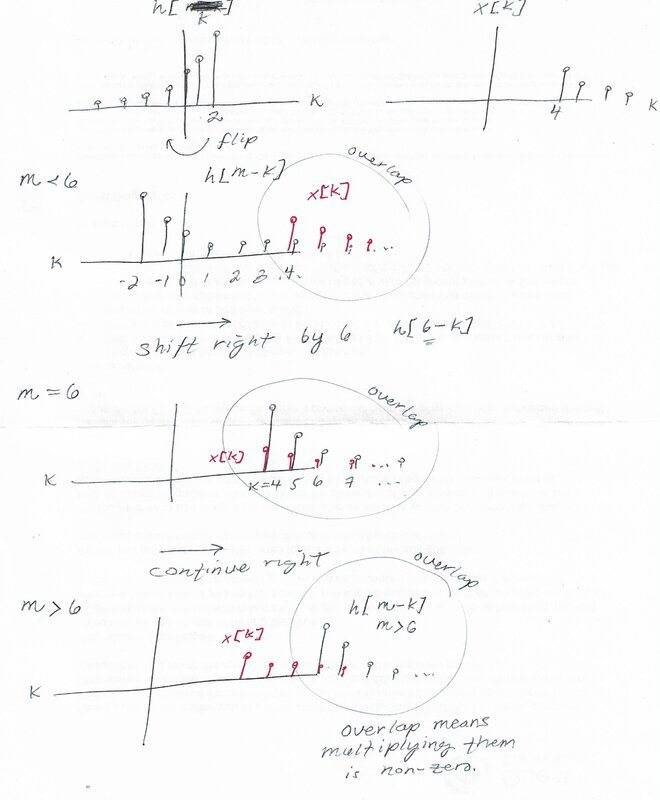 h[k]
x[k]
K
K
2
4
flip
overlap
m<6
h[m-k]
x[k]
...
K
-2 -1 0 1 2 3 .4.
shift right by 6 h[6-k]
m=6
overlap
x[k]
...
K
K=4 5 6 7 ...
continue right
overlap
m>6
h[m-k]
m>6
x[k]
...
K
overlap means
multiplying them
is non-zero.